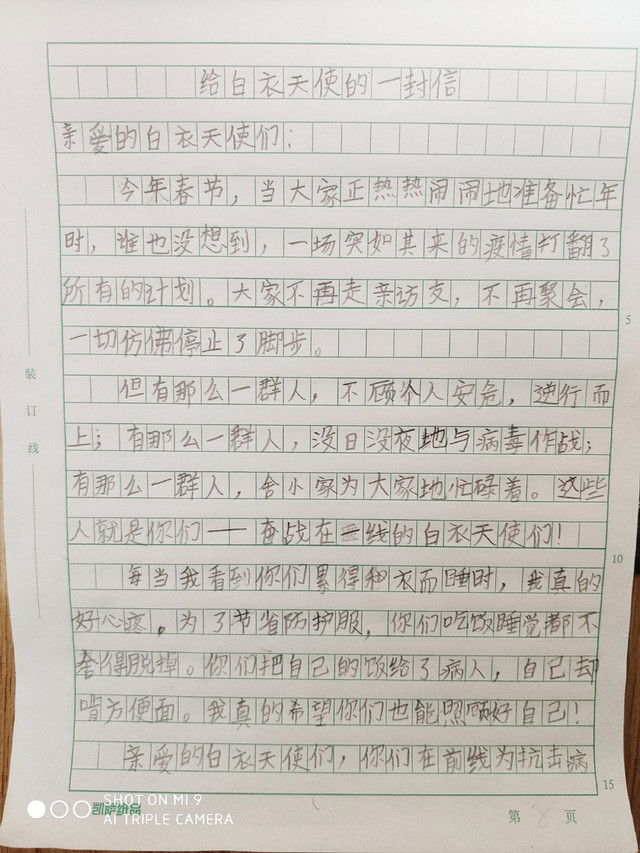 给白衣天使的一封信
亲爱的白衣天使们：
今年春节，当大家正热热闹闹地准备忙年
时，谁也没想到，一场突如其来的疫情打翻了
所有的计划。大家不再走亲访友，不再聚会，
一切仿佛停止了脚步。
5
但有那么一群人，不顾个人安危，逆行而
上；有那么一群人，没日没夜地与病毒作战；
有那么一群人，舍小家为大家地忙碌着。这些
人就是你们——奋战在一线的白衣天使们！
10
每当我看到你们累得和衣而睡时，我真的
好心疼。为了节省防护服，你们吃饭睡觉都不
舍得脱掉。你们把自己的饭给了病人，自己却
啃方便面。我真的希望你们也能照顾好自己！
亲爱的白衣天使们，你们在前线为抗击病
15
装订线
凯萨纸品
第 页
SHOT ON MI 9
AI TRIPLE CAMERA